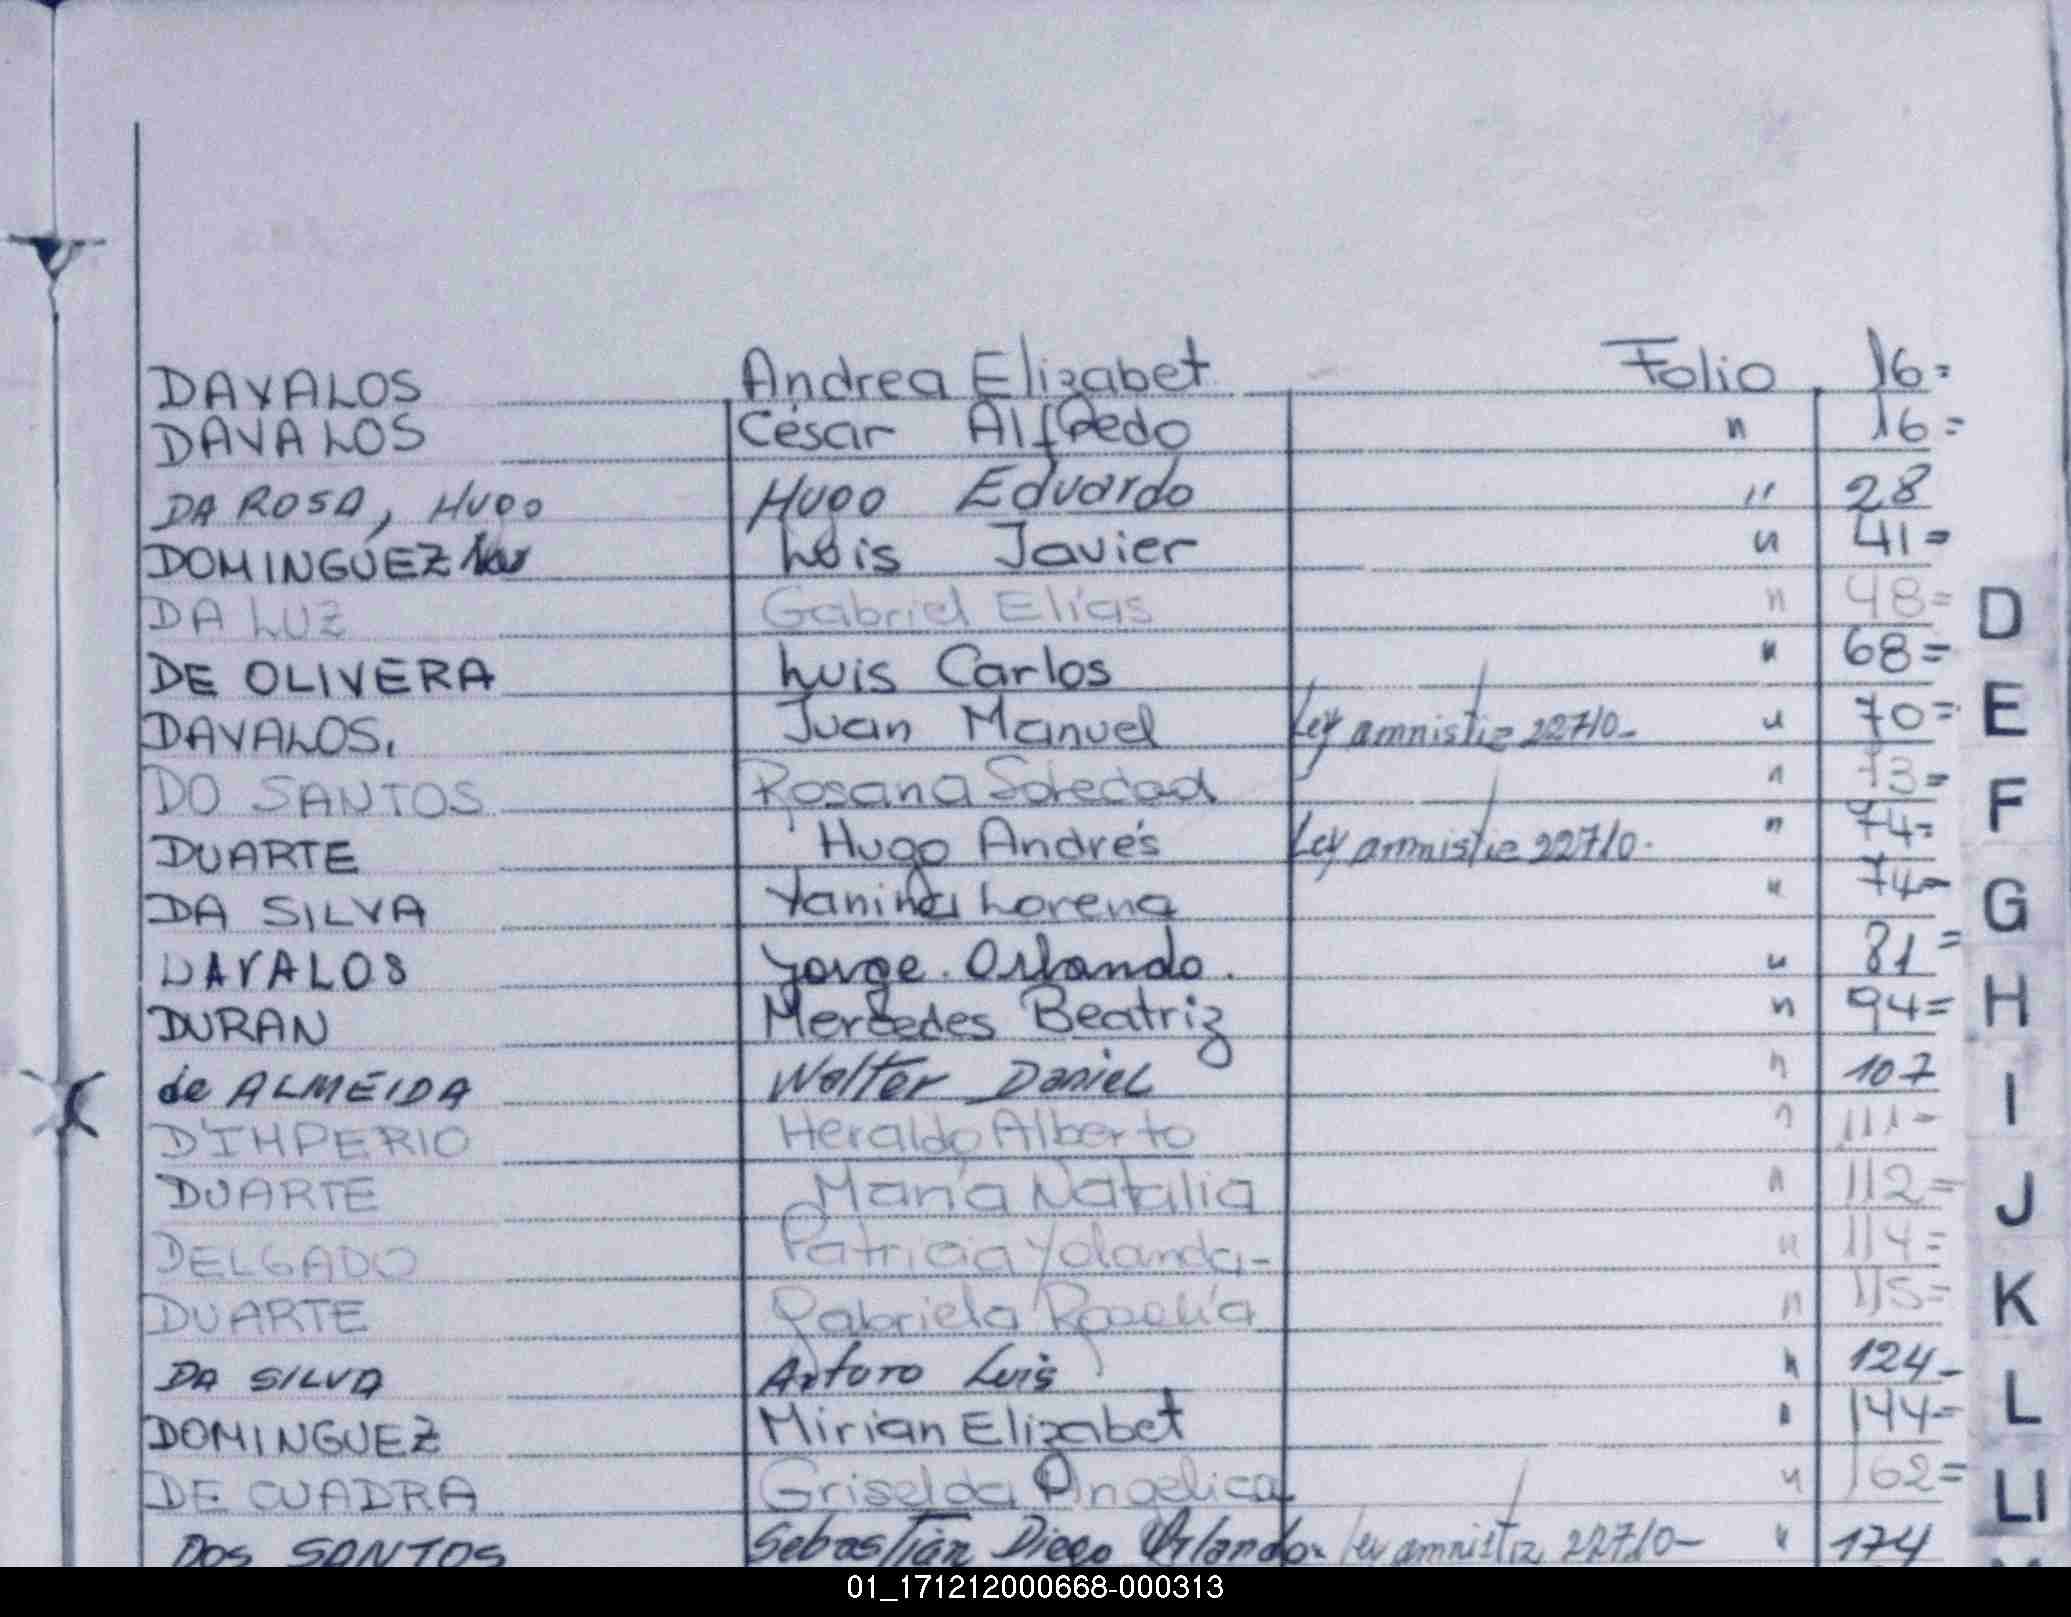 DAVALOS Andrea Elizabet Folio 16=
DAVALOS César Alfredo " 16=
DA ROSA, HUGO HUGO EDUARDO " 28
DOMINGUEZ Luis Javier " 41=
DA LUZ Gabriel Elías " 48=
DE OLIVERA Luis Carlos " 68=
DAVALOS, Juan Manuel Ley amnistia 22710- " 70=
DO SANTOS Rosana Soledad " 73=
DUARTE Hugo Andrés Ley amnistia 22710- " 74=
DA SILVA Yanina Lorena " 74=
DAVALOS Jorge Orlando. " 81=
DURAN Mercedes Beatriz " 94=
de ALMEIDA Walter Daniel " 107
D'IMPERIO Heraldo Alberto " 111-
DUARTE María Natalia " 112=
DELGADO Patricia Yolanda- " 114=
DUARTE Gabriela Rosalía " 115=
DA SILVA Arturo Luis " 124-
DOMINGUEZ Mirian Elizabet " 144=
DE CUADRA Griselda Angelica " 162=
DOS SANTOS Sebastián Diego Orlando- ley amnistia 22710- " 174
D
E
F
G
H
I
J
K
L
Ll
01_171212000668-000313